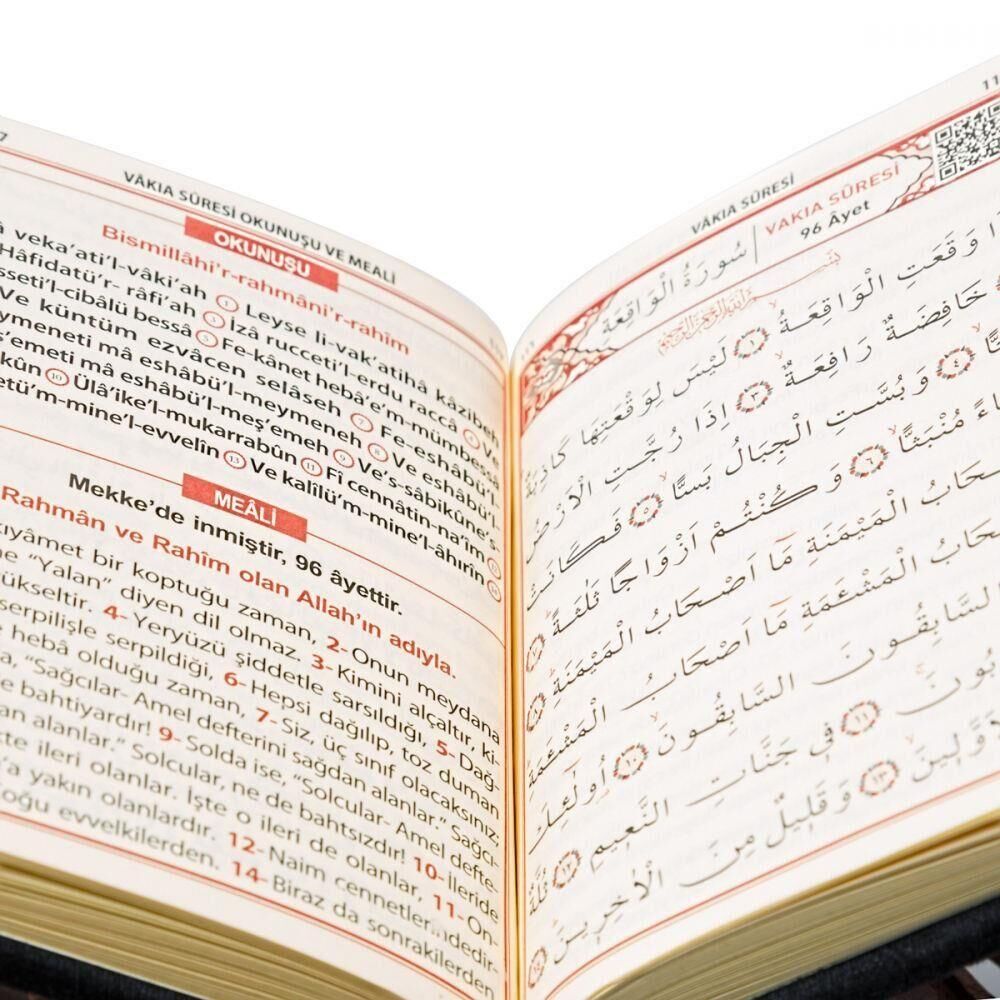 7
VÂKIA SÛRESİ OKUNUŞU VE MEALİ
OKUNUŞU
Bismillâhi'r-rahmâni'r-rahîm
veka'ati'l-vâki'ah ① Leyse li-vak'atihâ kâzibeh
Hâfidatü'r- râfi'ah ③ İzâ rucceti'l-erdu raccâ ④ Ve
sseti'l-cibâlü bessâ ⑤ Fe-kânet hebâ'e'm-mümbessâ
Ve küntüm ezvâcen selâseh ⑦ Fe-eshâbü'l-
ymeneti mâ eshâbü'l-meymeneh ⑧ Ve eshâbü'l-
ş'emeti mâ eshâbü'l-meş'emeh ⑨ Ve's-sâbikûne's-
kûn ⑩ Ülâ'ike'l-mukarrabûn ⑪ Fî cennâtin-na'îm ⑫
etü'm-mine'l-evvelîn ⑬ Ve kalîlü'm-mine'l-âhırîn ⑭
MEÂLİ
Mekke'de inmiştir, 96 âyettir.
Rahmân ve Rahîm olan Allah'ın adıyla.
kıyâmet bir koptuğu zaman, 2- Onun meydana
ne "Yalan" diyen dil olmaz. 3- Kimini alçaltır, ki-
yükseltir. 4- Yeryüzü şiddetle sarsıldığı, 5- Dağ-
serpilişle serpildiği, 6- Hepsi dağılıp, toz duman
heba olduğu zaman, 7- Siz, üç sınıf olacaksınız;
"Sağcılar- Amel defterini sağdan alanlar." Sağcı-
bahtiyardır! 9- Solda ise, "Solcular- Amel defte-
an alanlar." Solcular, ne de bahtsızdır! 10- İleride
te ileri olanlar. İşte o ileri de olanlar, 11- On-
'a yakın olanlardır. 12- Naim cennetlerindedir-
oğu evvelkilerden. 14- Biraz da sonrakilerden
11
VÂKIA SÛRESİ
سُورَةُ الْوَاقِعَةِ
VAKIA SÛRESİ
96 Âyet
بِسْمِ اللَّهِ الرَّحْمَنِ الرَّحِيمِ
ا وَقَعَتِ الْوَاقِعَةُ ١ لَيْسَ لِوَقْعَتِهَا كَاذِبَةٌ
خَافِضَةٌ رَافِعَةٌ ٣ اِذَا رُجَّتِ الْاَرْضُ
ًّا ٤ وَبُسَّتِ الْجِبَالُ بَسًّا ٥ فَكَانَتْ
اءً مُنْبَثًّا ٦ وَكُنْتُمْ اَزْوَاجًا ثَلٰثَةً ٧
حَابُ الْمَيْمَنَةِ مَا اَصْحَابُ الْمَيْمَنَةِ ٨
حَابُ الْمَشْئَمَةِ مَا اَصْحَابُ الْمَشْئَمَةِ
السَّابِقُونَ السَّابِقُونَ ١٠ اُولٰئِكَ
بُونَ ١١ فِى جَنَّاتِ النَّعِيمِ ١٢ ثُلَّةٌ
وَّلِينَ ١٣ وَقَلِيلٌ مِنَ الْاٰخِرِينَ ١٤